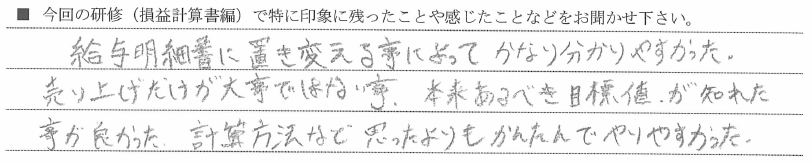 ■ 今回の研修（損益計算書編）で特に印象に残ったことや感じたことなどをお聞かせ下さい。
給与明細書に置き変える事によって かなり分かりやすかった。
売り上げだけが大事ではない事、本来あるべき目標値が知れた
事が良かった。計算方法など思ったよりもかんたんでやりやすかった。